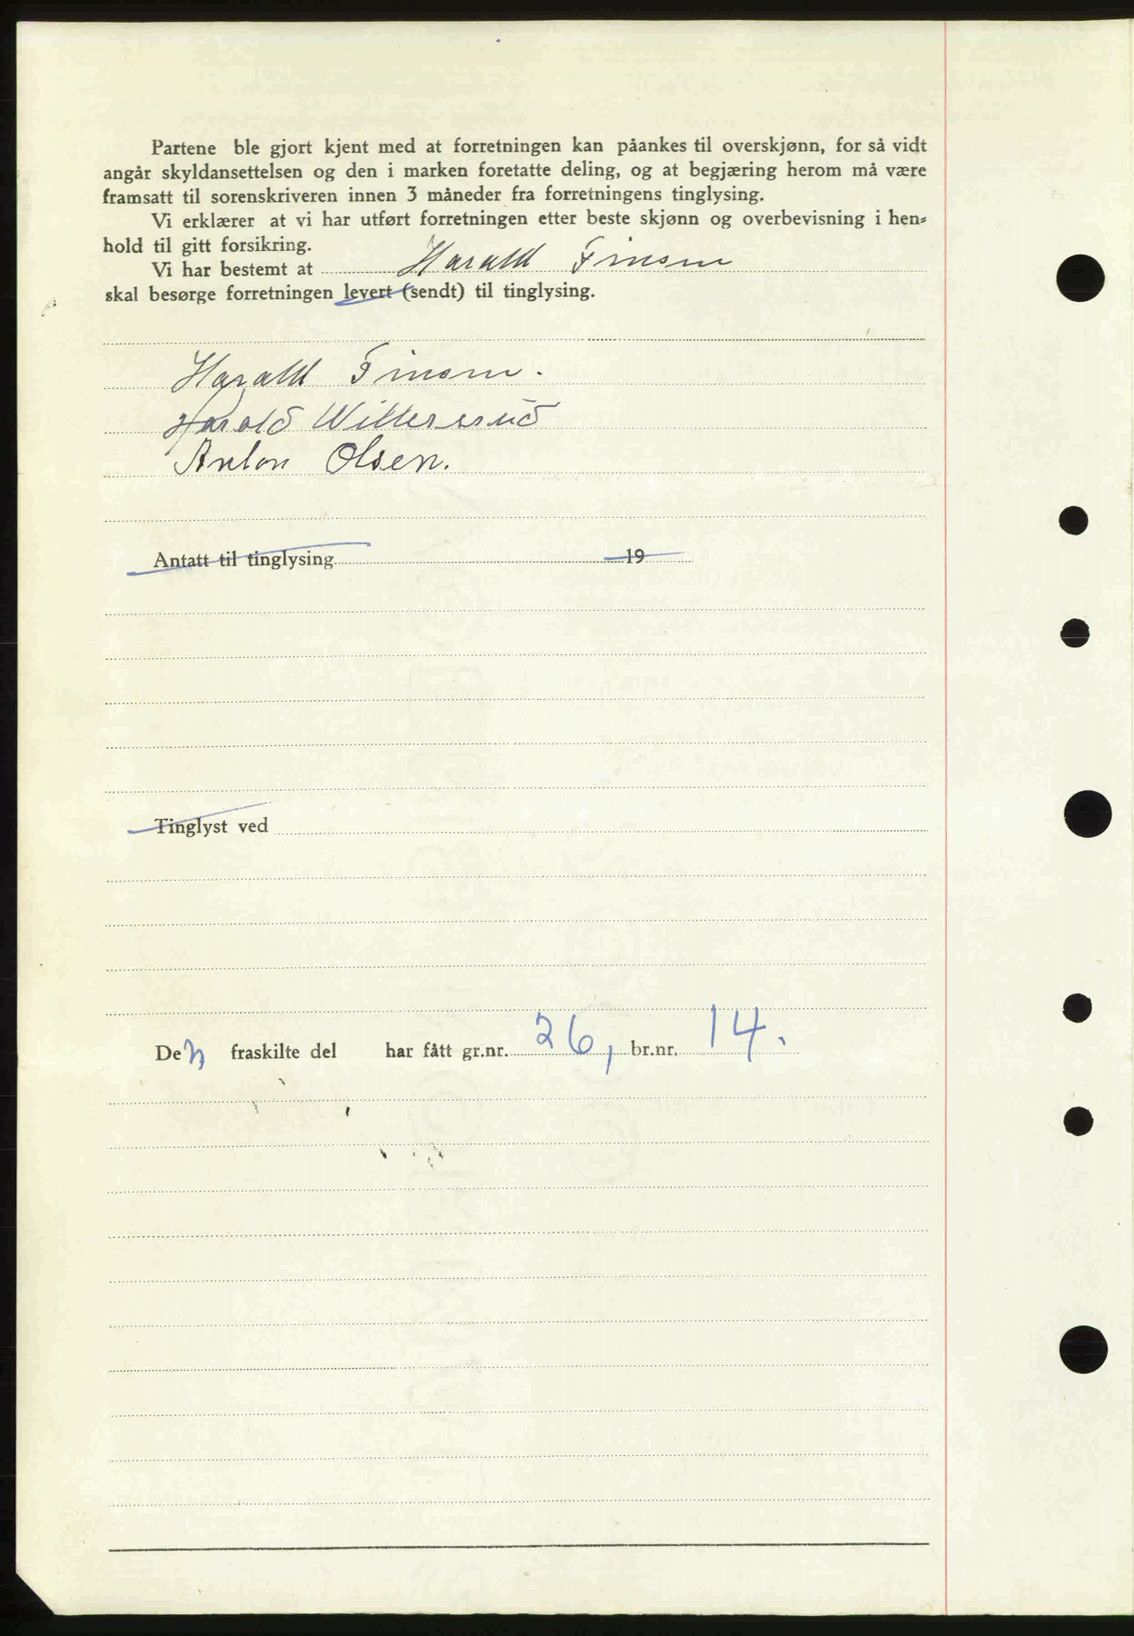 Partene ble gjort kjent med at forretningen kan påankes til overskjønn, for så vidt
angår skyldansettelsen og den i marken foretatte deling, og at begjæring herom må være
framsatt til sorenskriveren innen 3 måneder fra forretningens tinglysing.
Vi erklærer at vi har utført forretningen etter beste skjønn og overbevisning i hen-
hold til gitt forsikring.
Vi har bestemt at Harald Finsen
skal besørge forretningen levert (sendt) til tinglysing.
Harald Finsen.
Harald Willersrud
Anton Olsen.
Antatt til tinglysing 19
Tinglyst ved
Den fraskilte del har fått gr.nr. 26, br.nr. 14.